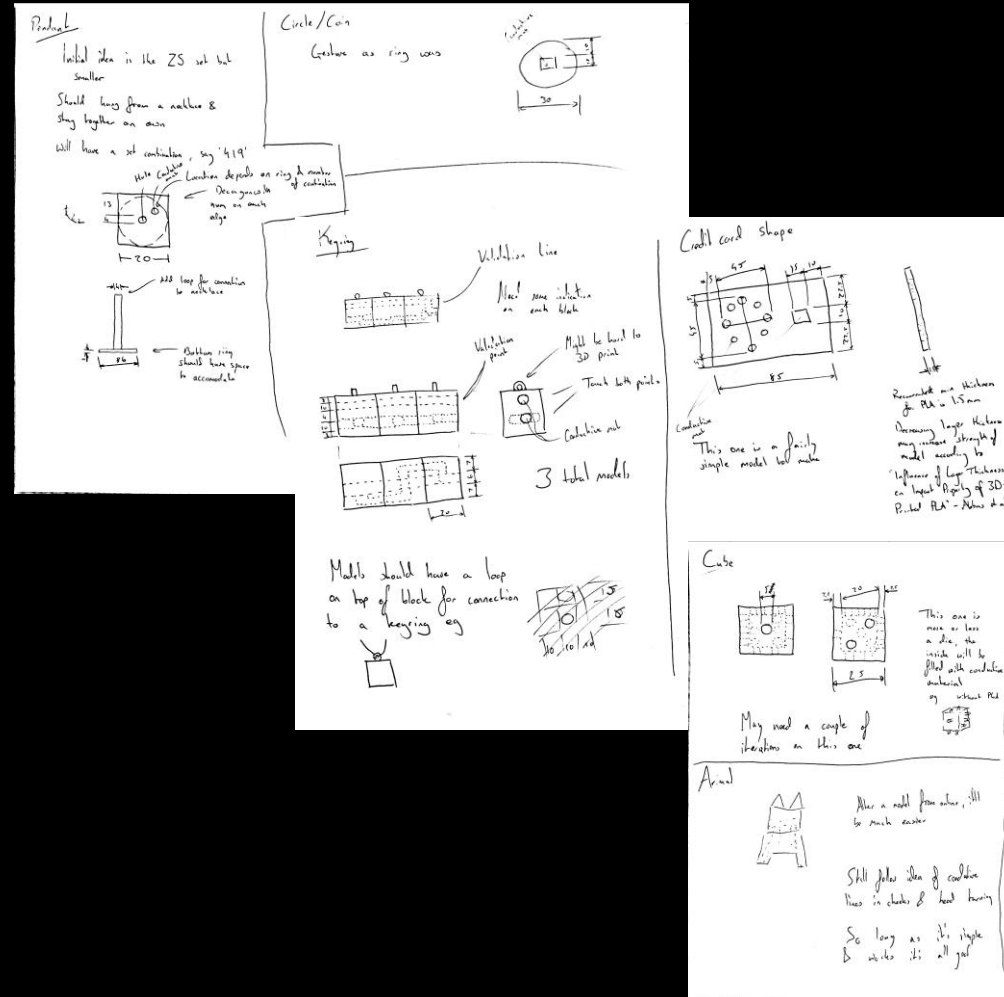 Pendant
Initial idea is the ZS set but
smaller
Should hang from a necklace &
stay together on own
Will have a set combination, say '419'
Hole
Conductive
Location depends on ring & number
of combination
num on each
edge
13
20
Add loop for connection
to necklace
Bottom ring
should have space
to accomodate
86
Circle/Coin
Gesture as ring was
Conductive
30
Keyring
Validation Line
Need some indication
on each block
Validation
point
Might be hard to
3D print
Touch both points
Conductive mat
3 total models
20
Models should have a loop
on top of block for connection
to a keyring eg
Credit card shape
45
5
15
10
45
85
Conductive
mat
This one is a fairly
simple model to make
Recommended min thickness
for PLA is 1.5mm
Decreasing layer thickness
may increase strength of
model according to
"Influence of Layer Thickness
on Impact Property of 3D-
Printed PLA" -
Cube
20
25
This one is
more or less
a die, the
inside will be
filled with conductive
material
eg without PLA
May need a couple of
iterations on this one
Animal
Alter a model from online, it'll
be much easier
Still follow idea of conductive
lines in cheeks & head turning
So long as it's simple
& works it's all good